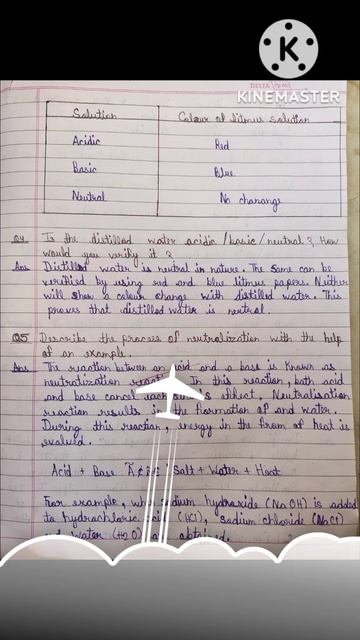 DELTA
KINEMASTER
Solution Colour of litmus solution
Acidic Red
Basic Blue
Neutral No chanange
Q4 Is the distilled water acidic /basic/neutral? How
would you verify it?
Ans Distilled water is neutral in nature. The same can be
verified by using red and blue litmus papers. Neither
will show a colour change with distilled water. This
proves that distilled water is neutral.
Q5 Describe the process of neutralization with the help
of an example.
Ans The reaction between an acid and a base is known as
neutralization In this reaction, both acid
and base cancel effect. Neutralisation
reaction results in the formation of and water.
During this reaction, energy in the from of heat is
evalued.
Acid + Base Salt + Water + Heat
For example, sodium hydroxide (NaOH) is added
to hydrochloric (HCl), sodium chloride (NaCl)
water (H2O) obtained.